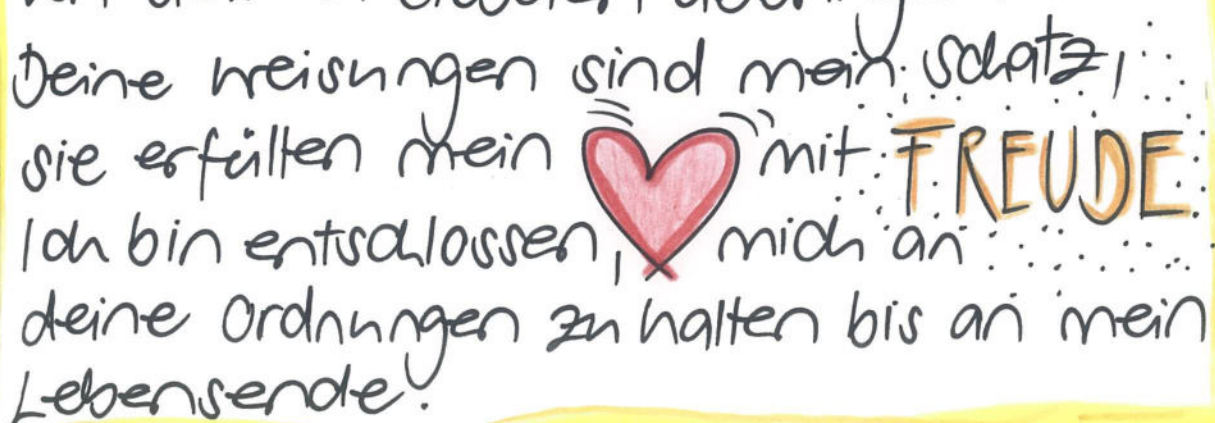 Deine Weisungen sind mein Schatz,
sie erfüllen mein mit FREUDE.
Ich bin entschlossen, mich an
deine Ordnungen zu halten bis an mein
Lebensende!